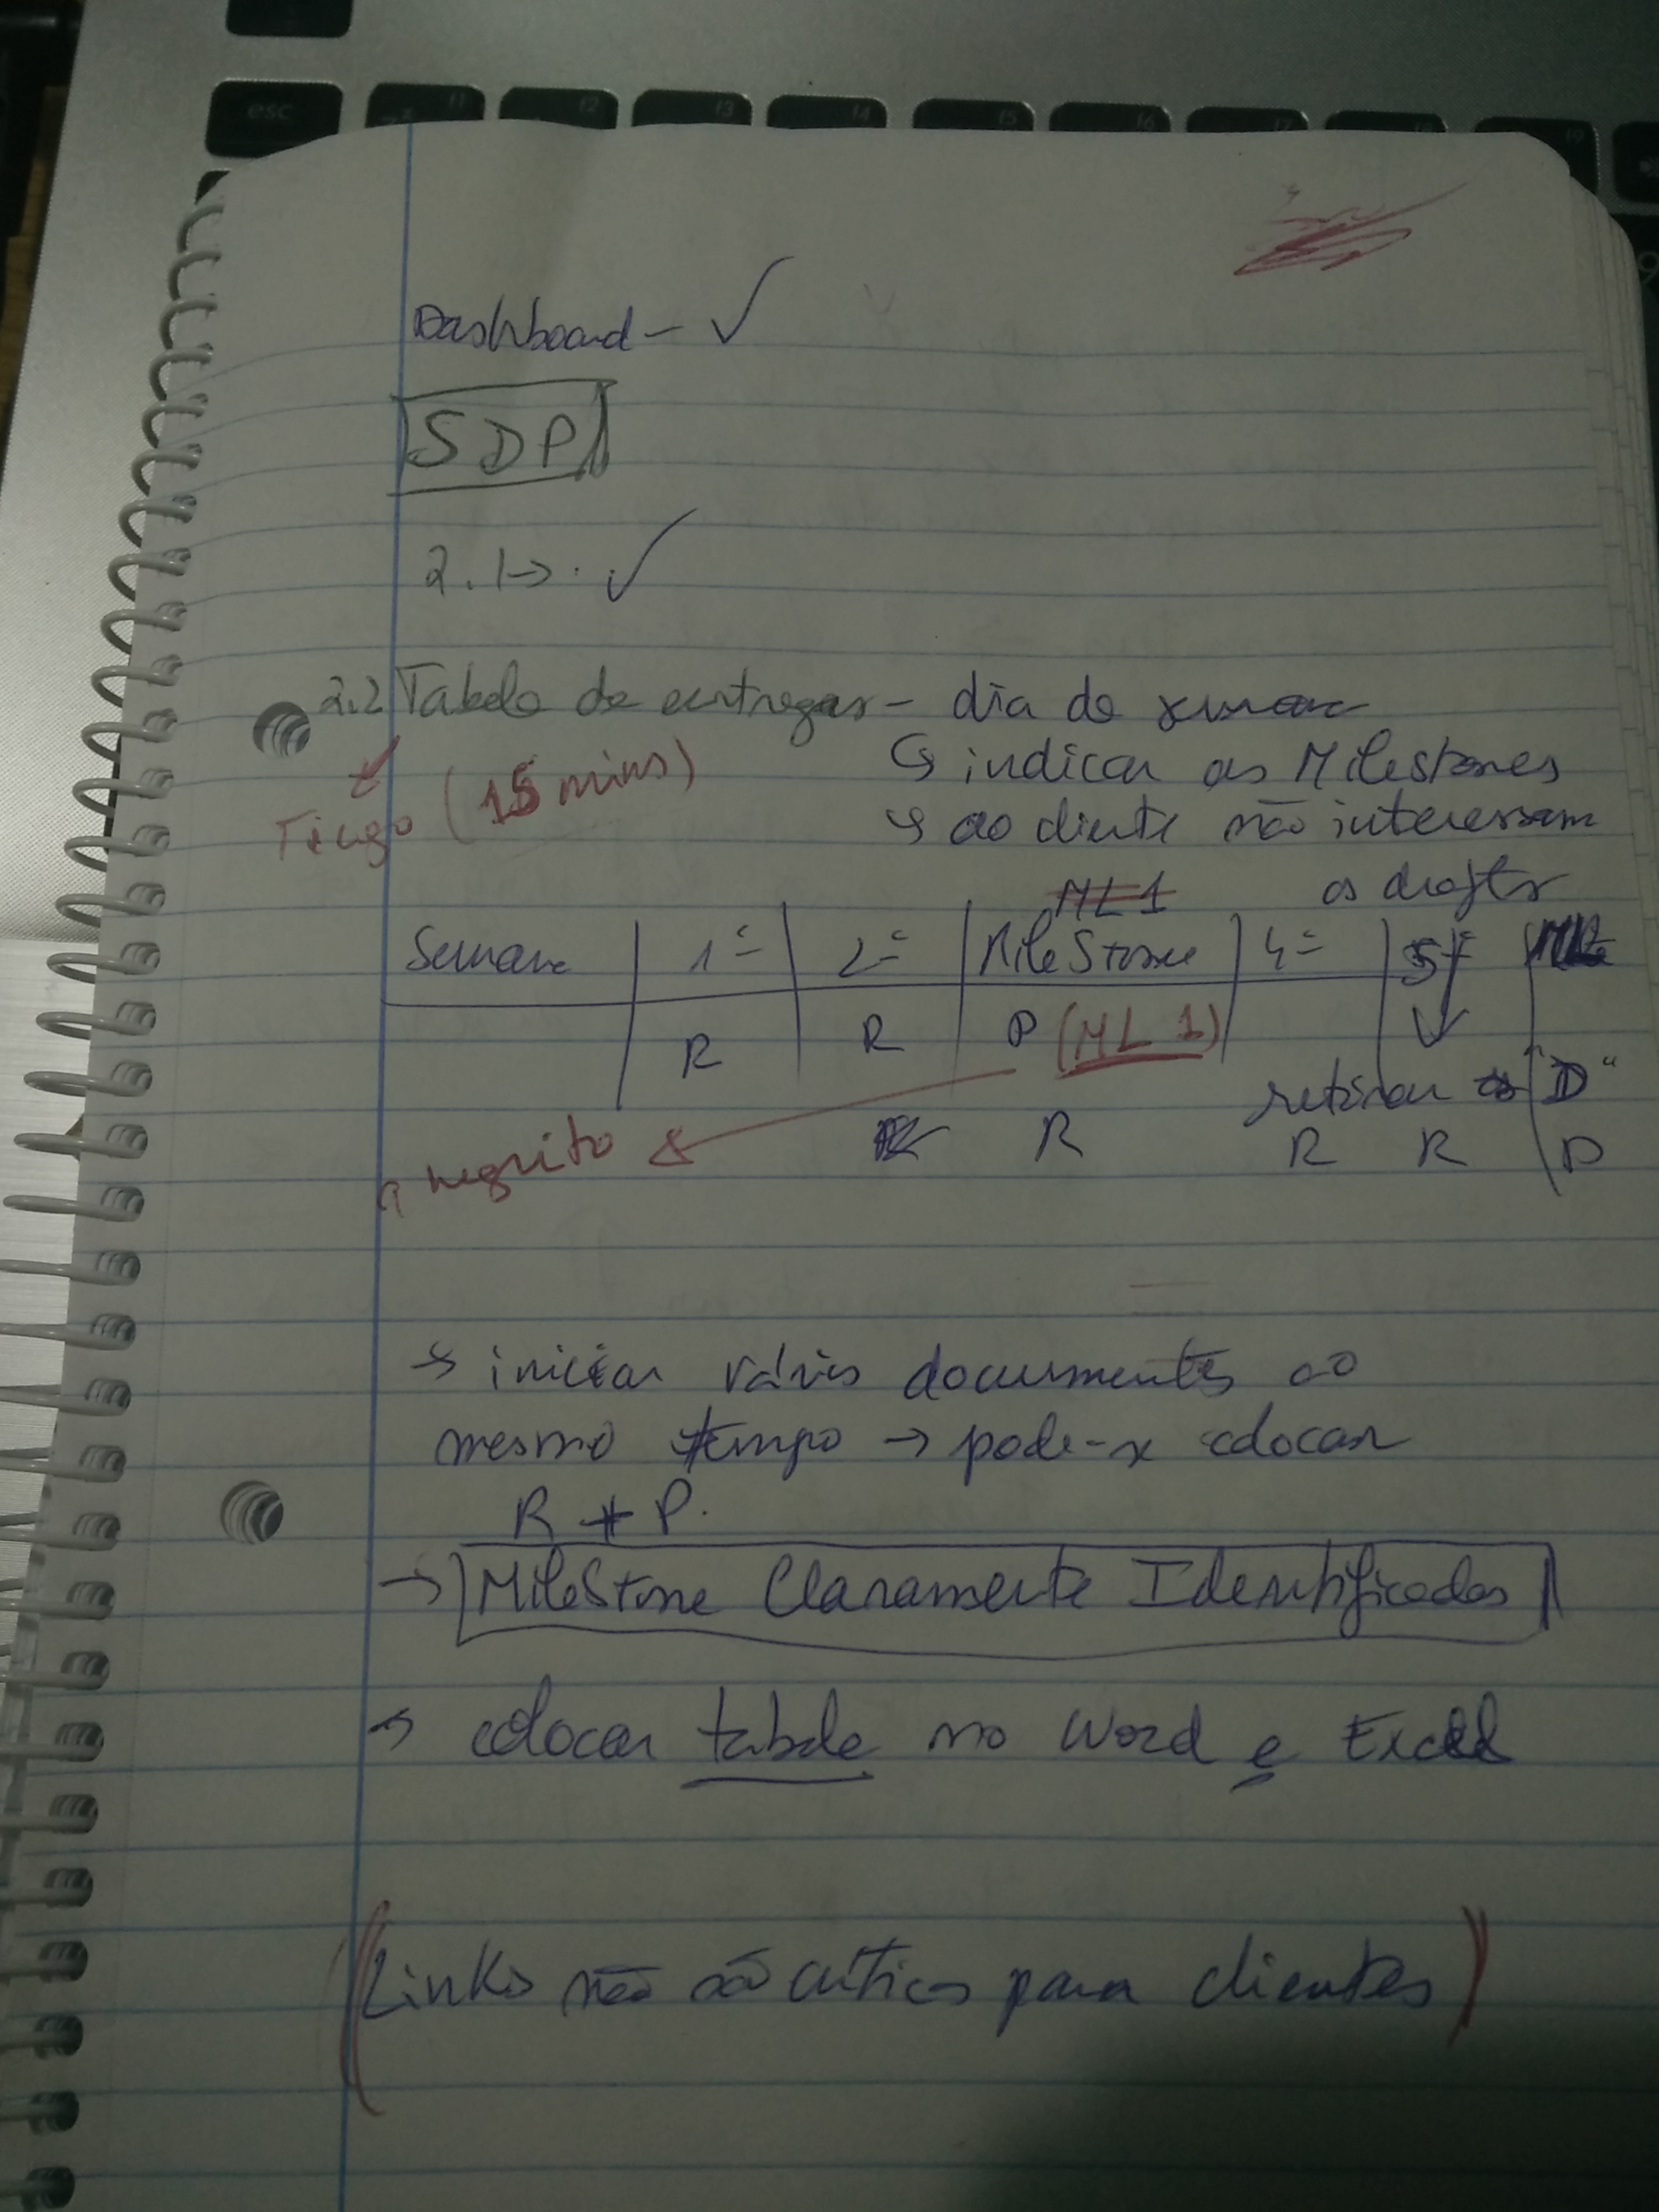 esc
Dashboard - ✓
SDP
2.1 → . ✓
2.2 Tabela de entregas - dia de semana
↳ indicar as Milestones
Tiago (15 mins)
↳ ao cliente não interessam
os drafts
ML1
Semana | 1ª | 2ª | MileStone | 4ª | 5ª
R | R | P (ML 1)
retirar os "D"
R R R P
a negrito
→ iniciar vários documentos ao
mesmo tempo → pode-se colocar
R + P.
→ MileStone Claramente Identificadas
→ colocar tabela no Word e Excel
(Links não são críticos para clientes)